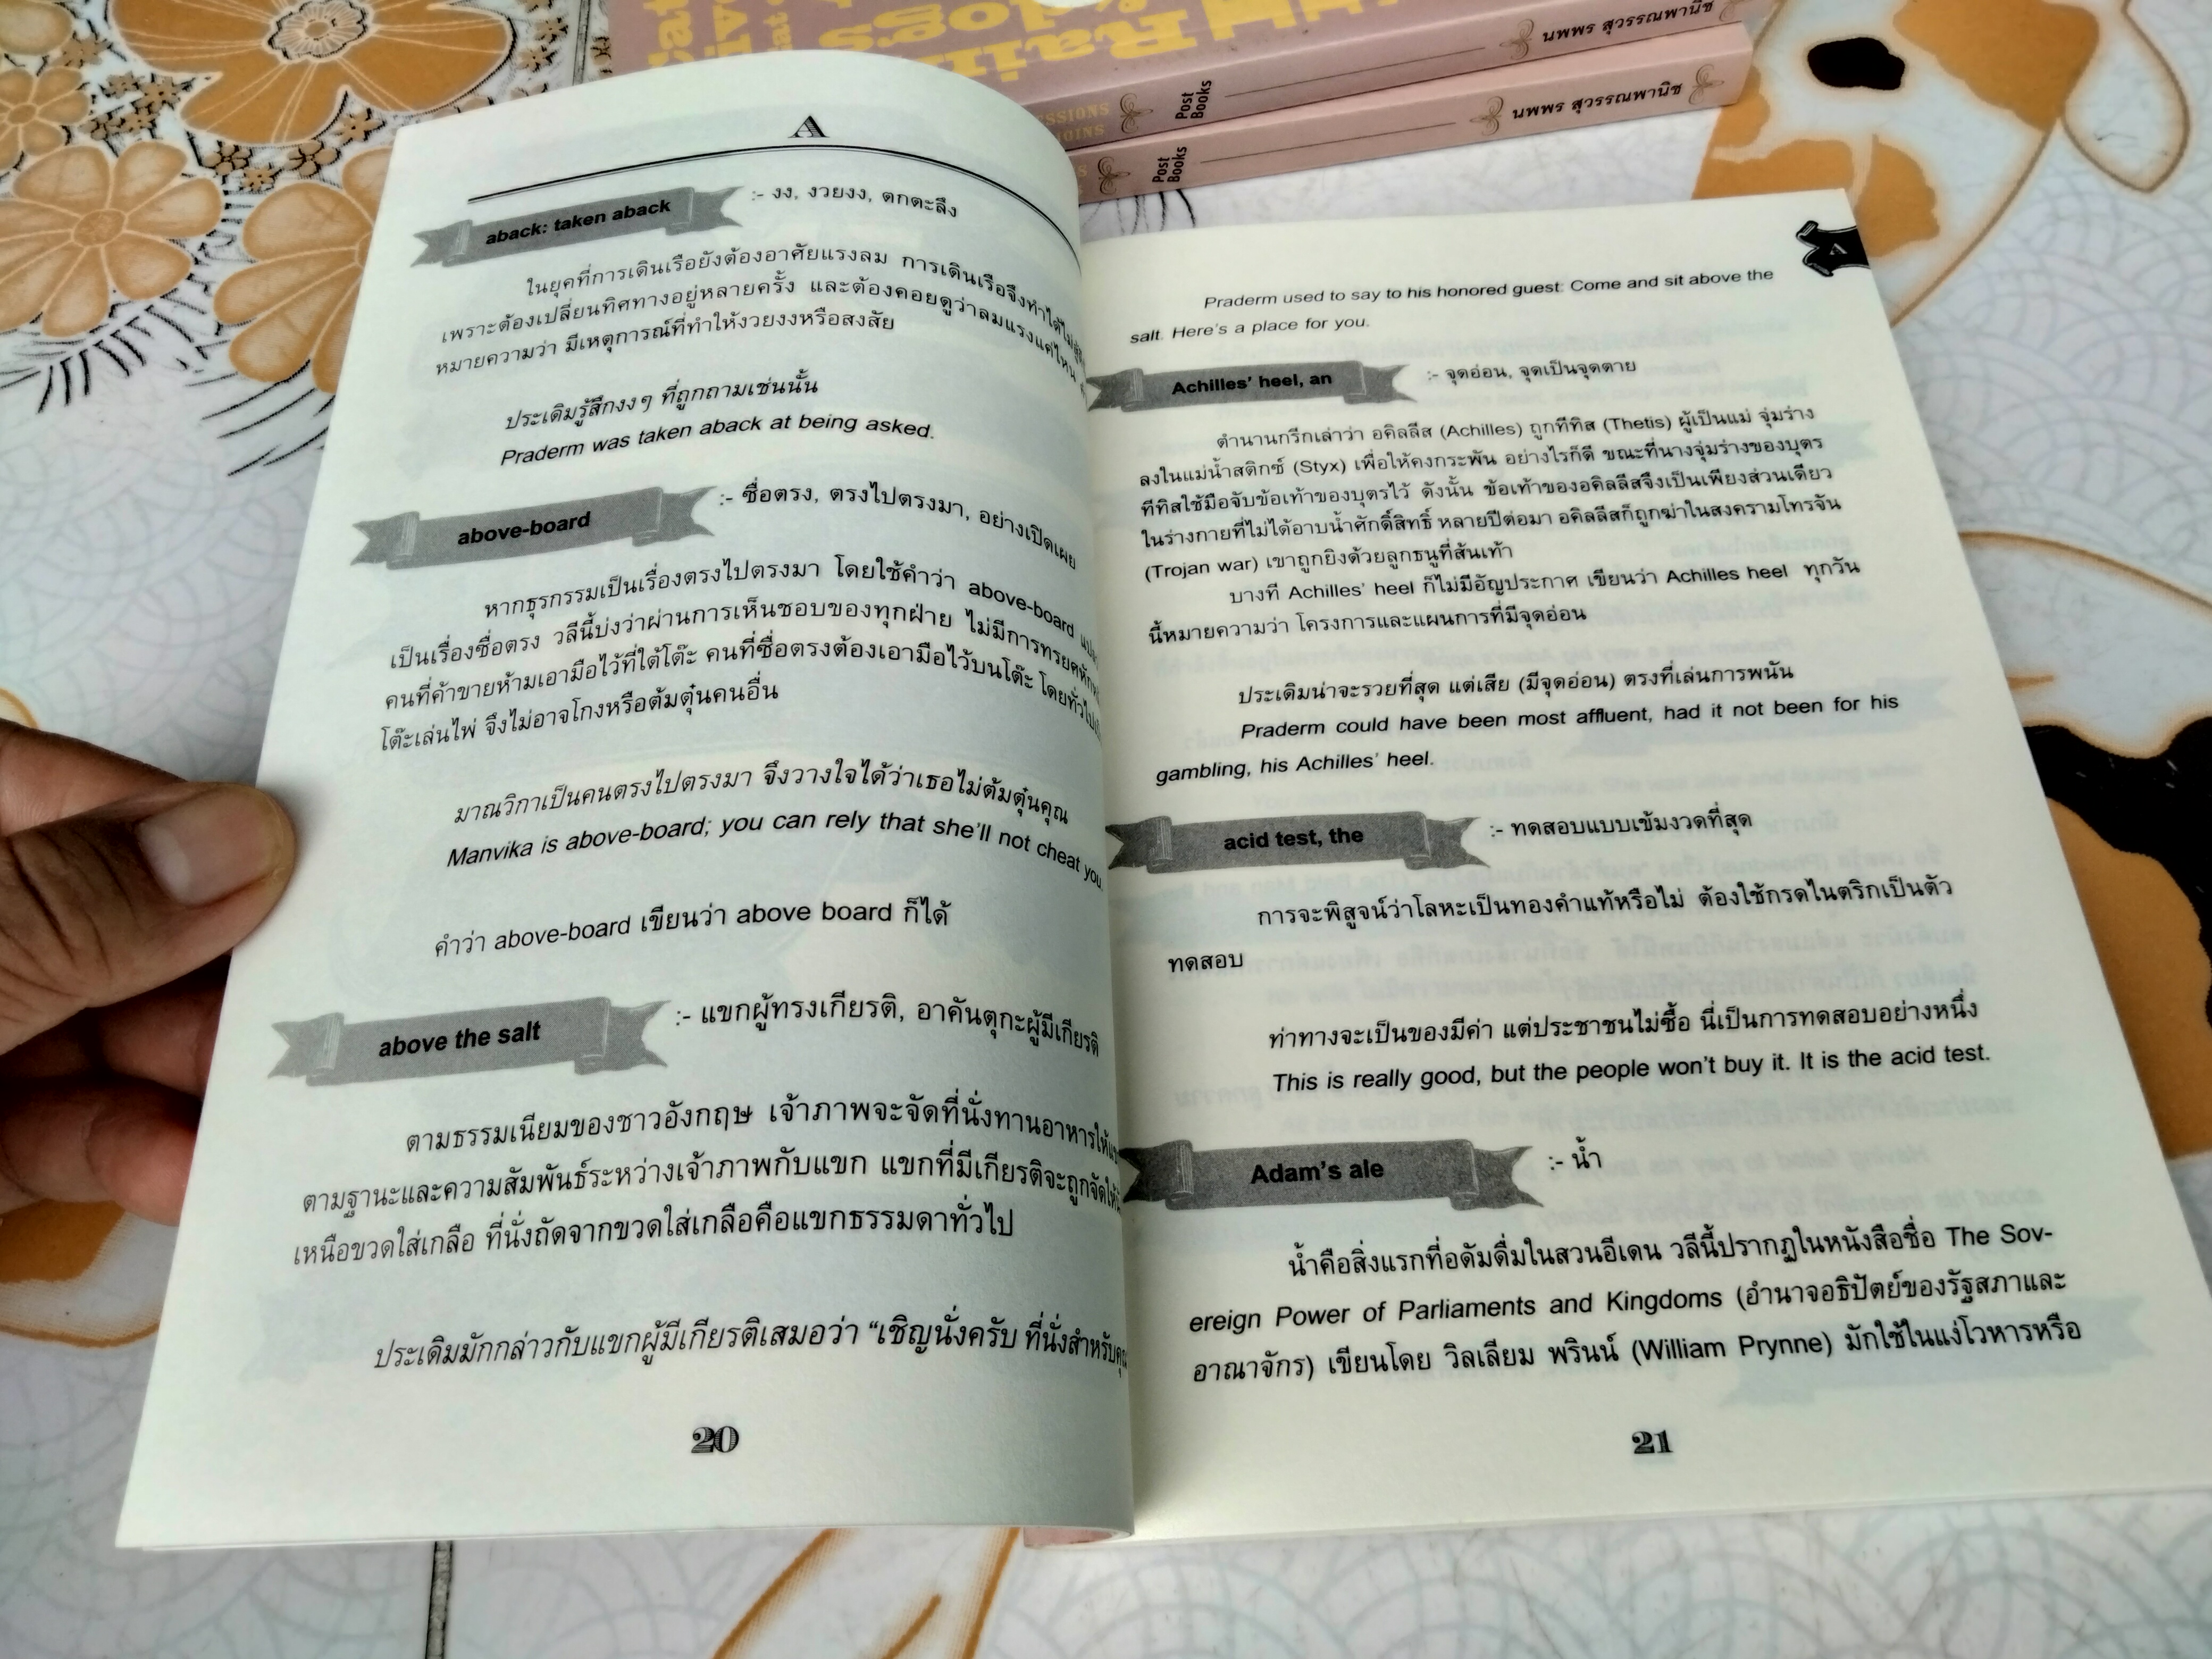 Rain
dogs
นพพร สุวรรณพานิช
Post Books
นพพร สุวรรณพานิช
Post Books
A
aback: taken aback :- งง, งวยงง, ตกตะลึง
ในยุคที่การเดินเรือยังต้องอาศัยแรงลม การเดินเรือจึงทำได้ไม่
เพราะต้องเปลี่ยนทิศทางอยู่หลายครั้ง และต้องคอยดูว่าลมแรงแค่ไหน
หมายความว่า มีเหตุการณ์ที่ทำให้งวยงงหรือสงสัย
ประเดิมรู้สึกงงๆ ที่ถูกถามเช่นนั้น
Praderm was taken aback at being asked.
above-board :- ซื่อตรง, ตรงไปตรงมา, อย่างเปิดเผย
หากธุรกรรมเป็นเรื่องตรงไปตรงมา โดยใช้คำว่า above-board
เป็นเรื่องซื่อตรง วลีนี้บ่งว่าผ่านการเห็นชอบของทุกฝ่าย ไม่มีการทรยศหักหลัง
คนที่ค้าขายห้ามเอามือไว้ที่ใต้โต๊ะ คนที่ซื่อตรงต้องเอามือไว้บนโต๊ะ โดยทั่วไป
โต๊ะเล่นไพ่ จึงไม่อาจโกงหรือต้มตุ๋นคนอื่น
มาณวิกาเป็นคนตรงไปตรงมา จึงวางใจได้ว่าเธอไม่ต้มตุ๋นคุณ
Manvika is above-board; you can rely that she'll not cheat you.
คำว่า above-board เขียนว่า above board ก็ได้
above the salt :- แขกผู้ทรงเกียรติ, อาคันตุกะผู้มีเกียรติ
ตามธรรมเนียมของชาวอังกฤษ เจ้าภาพจะจัดที่นั่งทานอาหารให้
ตามฐานะและความสัมพันธ์ระหว่างเจ้าภาพกับแขก แขกที่มีเกียรติจะถูกจัดให้
เหนือขวดใส่เกลือ ที่นั่งถัดจากขวดใส่เกลือคือแขกธรรมดาทั่วไป
ประเดิมมักกล่าวกับแขกผู้มีเกียรติเสมอว่า “เชิญนั่งครับ ที่นั่งสำหรับคุณ
20
A
Praderm used to say to his honored guest: Come and sit above the
salt. Here's a place for you.
Achilles' heel, an :- จุดอ่อน, จุดเป็นจุดตาย
ตำนานกรีกเล่าว่า อคิลลีส (Achilles) ถูกทีทิส (Thetis) ผู้เป็นแม่ จุ่มร่าง
ลงในแม่น้ำสติกซ์ (Styx) เพื่อให้คงกระพัน อย่างไรก็ดี ขณะที่นางจุ่มร่างของบุตร
ทีทิสใช้มือจับข้อเท้าของบุตรไว้ ดังนั้น ข้อเท้าของอคิลลีสจึงเป็นเพียงส่วนเดียว
ในร่างกายที่ไม่ได้อาบน้ำศักดิ์สิทธิ์ หลายปีต่อมา อคิลลีสก็ถูกฆ่าในสงครามโทรจัน
(Trojan war) เขาถูกยิงด้วยลูกธนูที่ส้นเท้า
บางที Achilles' heel ก็ไม่มีอัญประกาศ เขียนว่า Achilles heel ทุกวัน
นี้หมายความว่า โครงการและแผนการที่มีจุดอ่อน
ประเดิมน่าจะรวยที่สุด แต่เสีย (มีจุดอ่อน) ตรงที่เล่นการพนัน
Praderm could have been most affluent, had it not been for his
gambling, his Achilles' heel.
acid test, the :- ทดสอบแบบเข้มงวดที่สุด
การจะพิสูจน์ว่าโลหะเป็นทองคำแท้หรือไม่ ต้องใช้กรดไนตริกเป็นตัว
ทดสอบ
ท่าทางจะเป็นของมีค่า แต่ประชาชนไม่ซื้อ นี่เป็นการทดสอบอย่างหนึ่ง
This is really good, but the people won't buy it. It is the acid test.
Adam's ale :- น้ำ
น้ำคือสิ่งแรกที่อดัมดื่มในสวนอีเดน วลีนี้ปรากฏในหนังสือชื่อ The Sov-
ereign Power of Parliaments and Kingdoms (อำนาจอธิปัตย์ของรัฐสภาและ
อาณาจักร) เขียนโดย วิลเลียม พรินน์ (William Prynne) มักใช้ในแง่โวหารหรือ
21